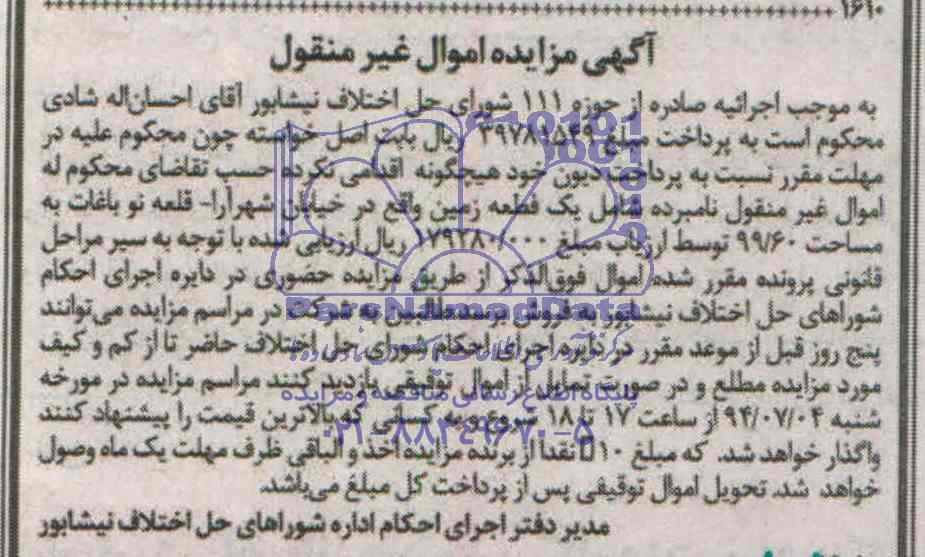 ۱۶۱۰
آگهی مزایده اموال غیر منقول
به موجب اجرائیه صادره از حوزه ۱۱۱ شورای حل اختلاف نیشابور آقای احسان‌اله شادی
محکوم است به پرداخت مبلغ ریال بابت اصل خواسته چون محکوم علیه در
مهلت مقرر نسبت به پرداخت دیون خود هیچگونه اقدامی نکرده حسب تقاضای محکوم له
اموال غیر منقول نامبرده شامل یک قطعه زمین واقع در خیابان شهرآرا- قلعه نو باغات به
مساحت ۹۹/۶۰ توسط ارزیاب مبلغ ریال ارزیابی شده با توجه به سیر مراحل
قانونی پرونده مقرر شده اموال فوق‌الذکر از طریق مزایده حضوری در دایره اجرای احکام
شوراهای حل اختلاف نیشابور به فروش برسد طالبین به شرکت در مراسم مزایده می‌توانند
پنج روز قبل از موعد مقرر در دایره اجرای احکام شورای حل اختلاف حاضر تا از کم و کیف
مورد مزایده مطلع و در صورت تمایل از اموال توقیفی بازدید کنند مراسم مزایده در مورخه
شنبه ۹۴/۰۷/۰۴ از ساعت ۱۷ تا ۱۸ شروع و به کسانی که بالاترین قیمت را پیشنهاد کنند
واگذار خواهد شد. که مبلغ ۱۰ نقدا از برنده مزایده اخذ و الباقی ظرف مهلت یک ماه وصول
خواهد شد. تحویل اموال توقیفی پس از پرداخت کل مبلغ می‌باشد.
مدیر دفتر اجرای احکام اداره شوراهای حل اختلاف نیشابور
ParsNamadData
پایگاه اطلاع رسانی مناقصه و مزایده
۰۲۱-۸۸۳۴۹۶۷۰-۵